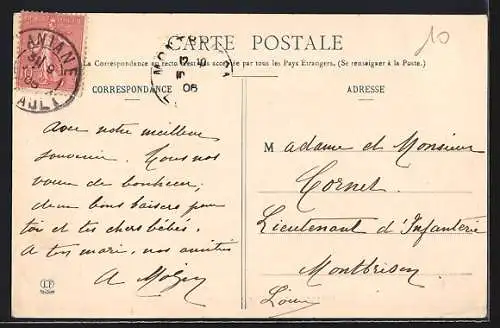 CARTE POSTALE
10
La Correspondance au recto n'est pas acceptée par tous les Pays Etrangers. (Se renseigner à la Poste.)
ANIANE
06
CORRESPONDANCE
ADRESSE
Avec notre meilleur
souvenir. Tous nos
vœux de bonheur,
deux bons baisers pour
toi et tes chers bébés.
A ton mari, nos amitiés
A
Madame et Monsieur
Cornet.
Lieutenant d'Infanterie
Montbrison
Loire